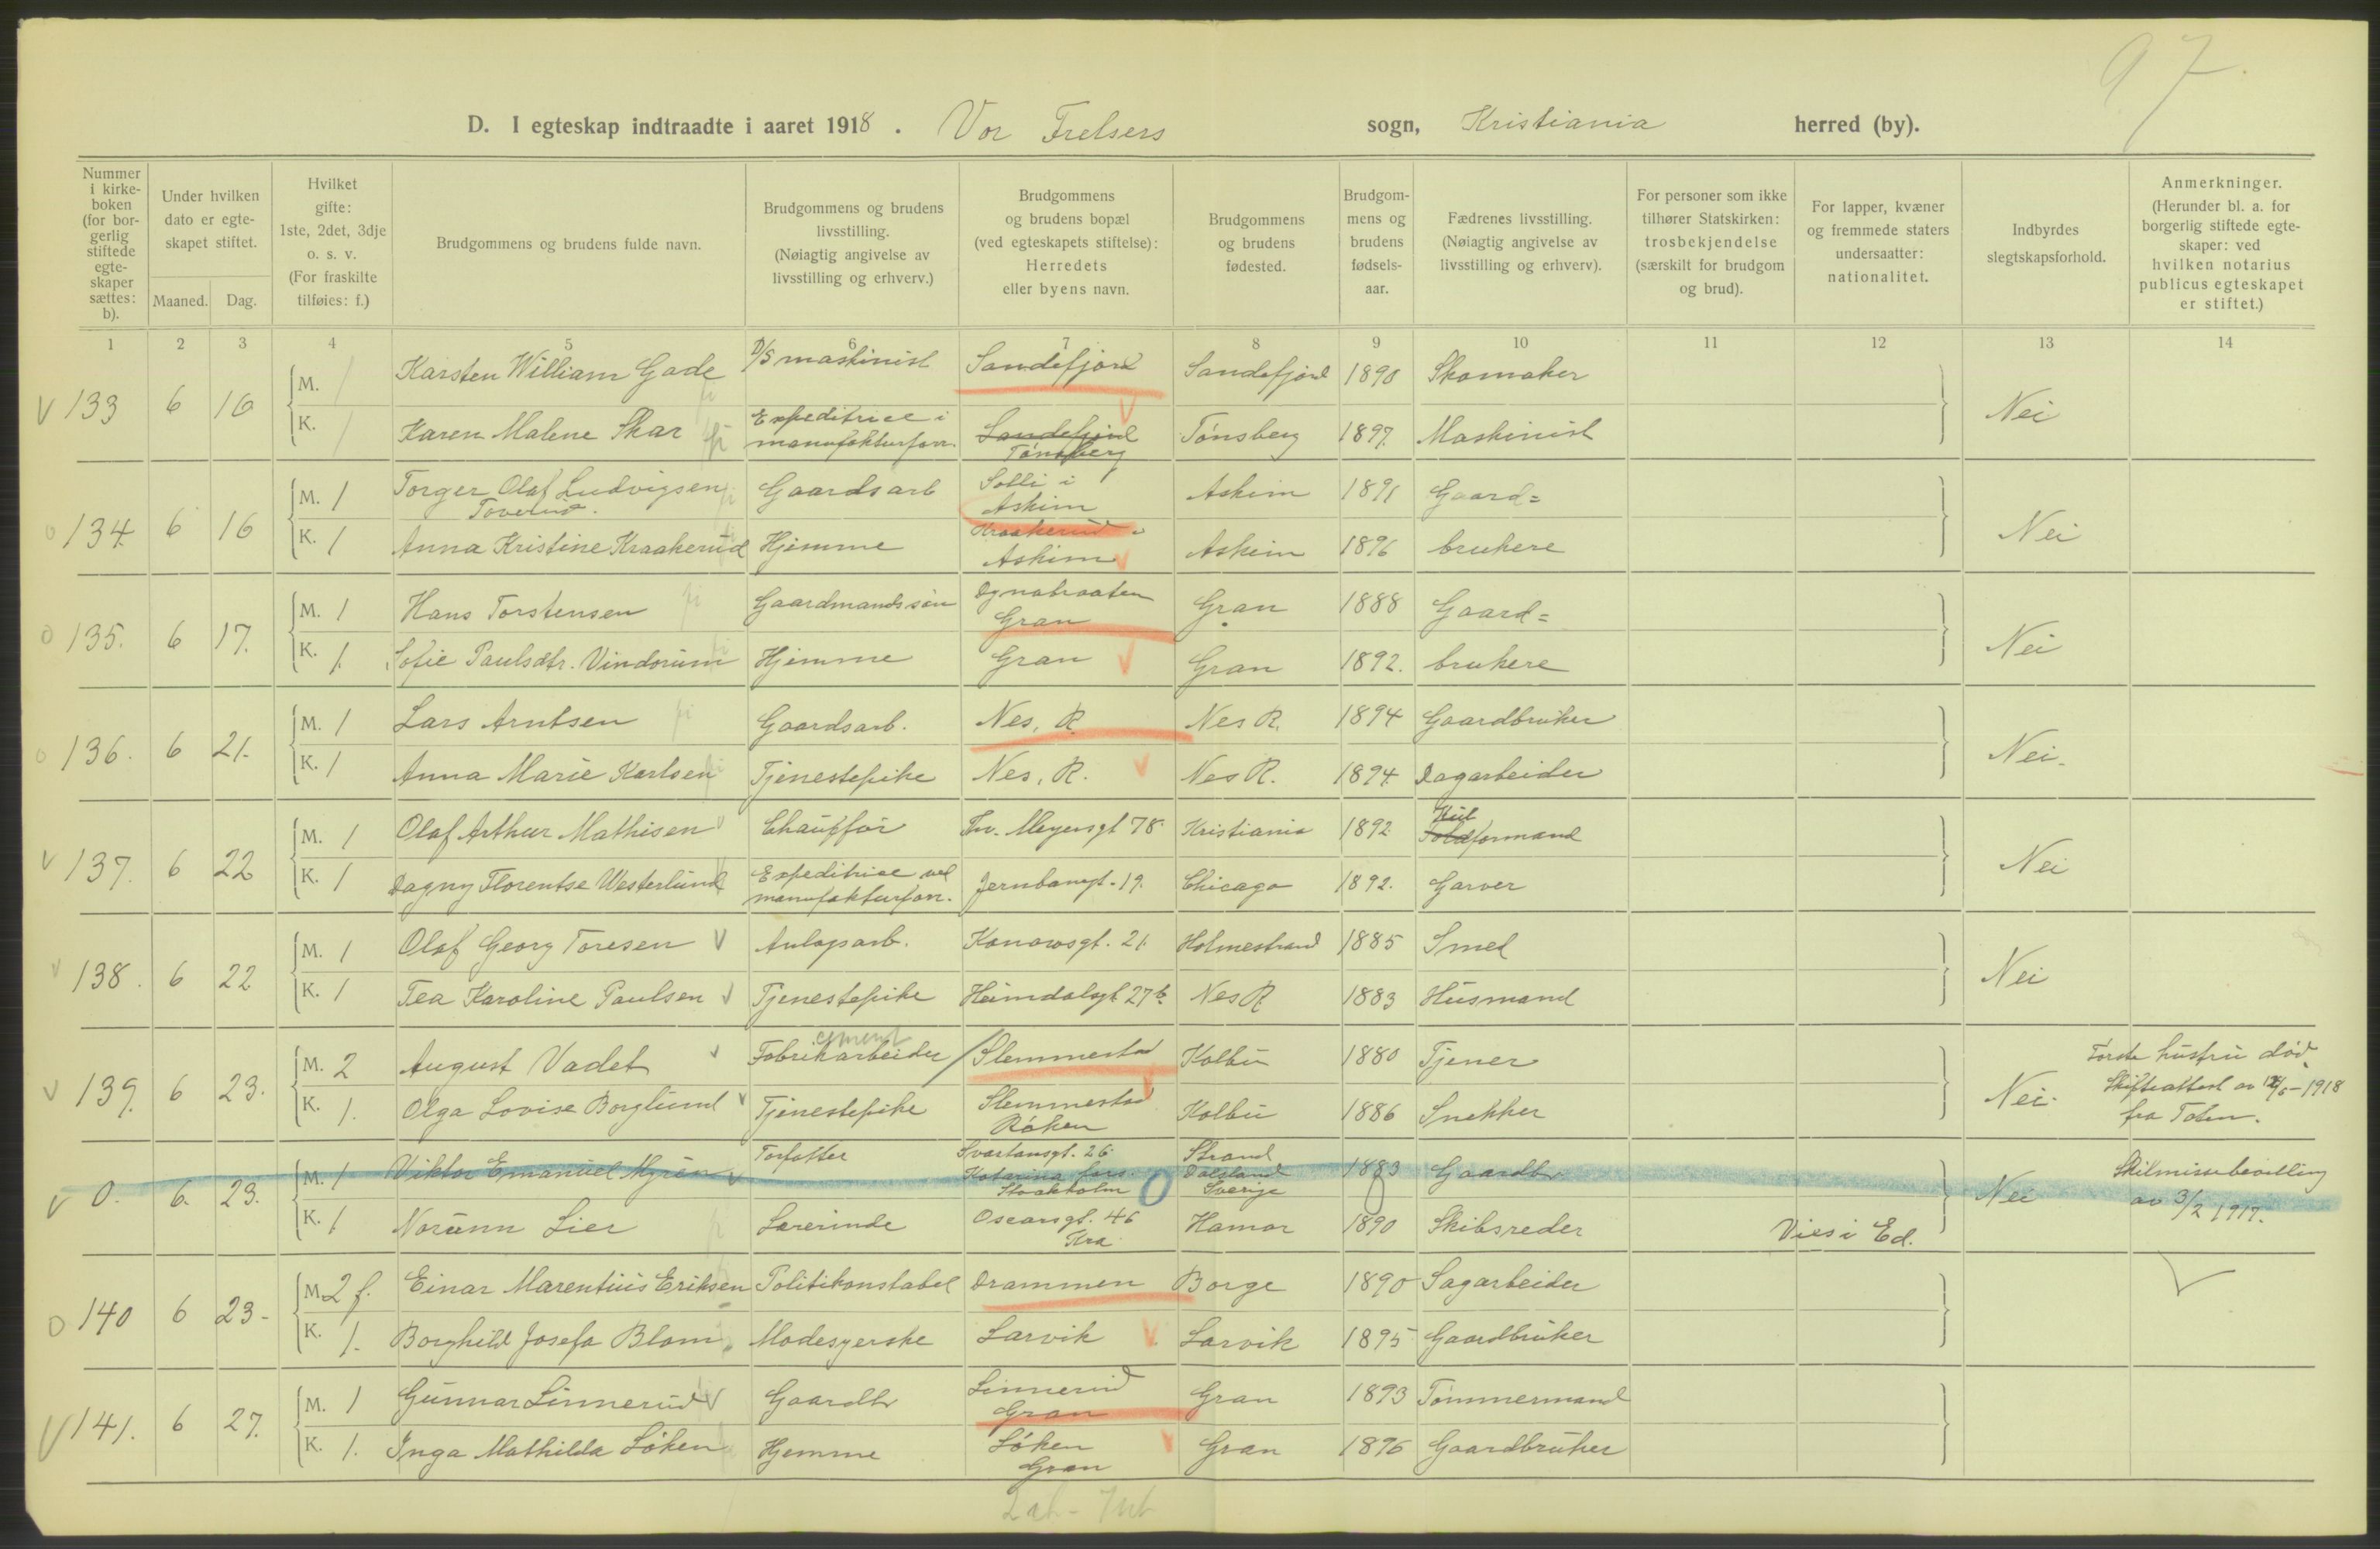 97.
D. I egteskap indtraadte i aaret 1918. Vor Frelsers sogn, Kristiania herred (by).
Nummer i kirke-boken (for bor-gerlig stiftede egte-skaper sættes: b).
Under hvilken dato er egte-skapet stiftet.
Maaned. Dag.
Hvilket gifte: 1ste, 2det, 3dje o. s. v. (For fraskilte tilføies: f.)
Brudgommens og brudens fulde navn.
Brudgommens og brudens livsstilling. (Nøiagtig angivelse av livsstilling og erhverv.)
Brudgommens og brudens bopæl (ved egteskapets stiftelse): Herredets eller byens navn.
Brudgommens og brudens fødested.
Brudgom-mens og brudens fødsels-aar.
Fædrenes livsstilling. (Nøiagtig angivelse av livsstilling og erhverv).
For personer som ikke tilhører Statskirken: trosbekjendelse (særskilt for brudgom og brud).
For lapper, kvæner og fremmede staters undersaatter: nationalitet.
Indbyrdes slegtskapsforhold.
Anmerkninger. (Herunder bl. a. for borgerlig stiftede egte-skaper: ved hvilken notarius publicus egteskapet er stiftet.)
1 2 3 4 5 6 7 8 9 10 11 12 13 14
133 6 16 M. 1 Karsten William Gade D/S maskinist Sandefjord Sandefjord 1890 Skomaker Nei
K. 1 Karen Malene Skar Expeditrice i manufakturforr. Sandefjord Tønsberg Tønsberg 1897. Maskinist
134. 6 16 M. 1 Torger Olaf Ludvigsen Toverud. Gaardsarb Solli i Askim Askim 1891 Gaard= Nei
K. 1 Anna Kristine Kraakerud Hjemme Kraakerud i Askim Askim 1896 brukere
135. 6 17. M. 1 Hans Torstensen Gaardmandssøn Gran Gran 1888 Gaard= Nei
K. 1. Sofie Paulsdtr. Vindorum Hjemme Gran Gran 1892. brukere
136. 6 21. M. 1 Lars Arntsen Gaardsarb. Nes, R. Nes R. 1894 Gaardbruker Nei.
K. 1 Anna Marie Karlsen Tjenestepike Nes, R. Nes R. 1894. Dagarbeider
137. 6 22 M. 1 Olaf Arthur Mathisen Chauffør Thv. Meyersgt 78. Kristiania 1892 Kulformand Nei
K. 1 Dagny Florentse Westerlund Expeditrice ved manufakturforr. Jernbanegt. 19. Chicago 1892. Garver
138. 6 22 M. 1 Olaf Georg Toresen Anlagsarb. Konowsgt. 21. Holmestrand 1885 Smed Nei
K. 1 Tea Karoline Paulsen Tjenestepike Heimdalsgt. 27 b. Nes R 1883 Husmand
139. 6 23. M. 2 August Vadet cement Fabrikarbeider Slemmestad Kolbu 1880 Tjener Nei. Første hustru død Skifteattest av 1918 fra Toten.
K. 1. Olga Lovise Borglund Tjenestepike Slemmestad Røken Kolbu 1886 Snekker
0. 6. 23. M. 1 Viktor Emanuel Myrén Forfatter Svartansgt. 26. Katarina førs. Stockholm Strand Dalsland Sverige 1883 Gaardbr Nei Skilmissebevilling av 3/2 1917.
K. 1 Norunn Lier Lærerinde Oscarsgt. 46 Kra. Hamar 1890 Skibsreder Vies i Ed.
140 6 23- M. 2 f. Einar Marentius Eriksen Politikonstabel Drammen Borge 1890 Sagarbeider
K. 1. Borghild Josefa Blom Modesyerske Larvik Larvik 1895 Gaardbruker
141. 6 27. M. 1 Gunnar Linnerud Gaardbr Linnerud Gran Gran 1893 Tømmermand
K. 1. Inga Mathilda Løken Hjemme Løken Gran Gran 1896 Gaardbruker